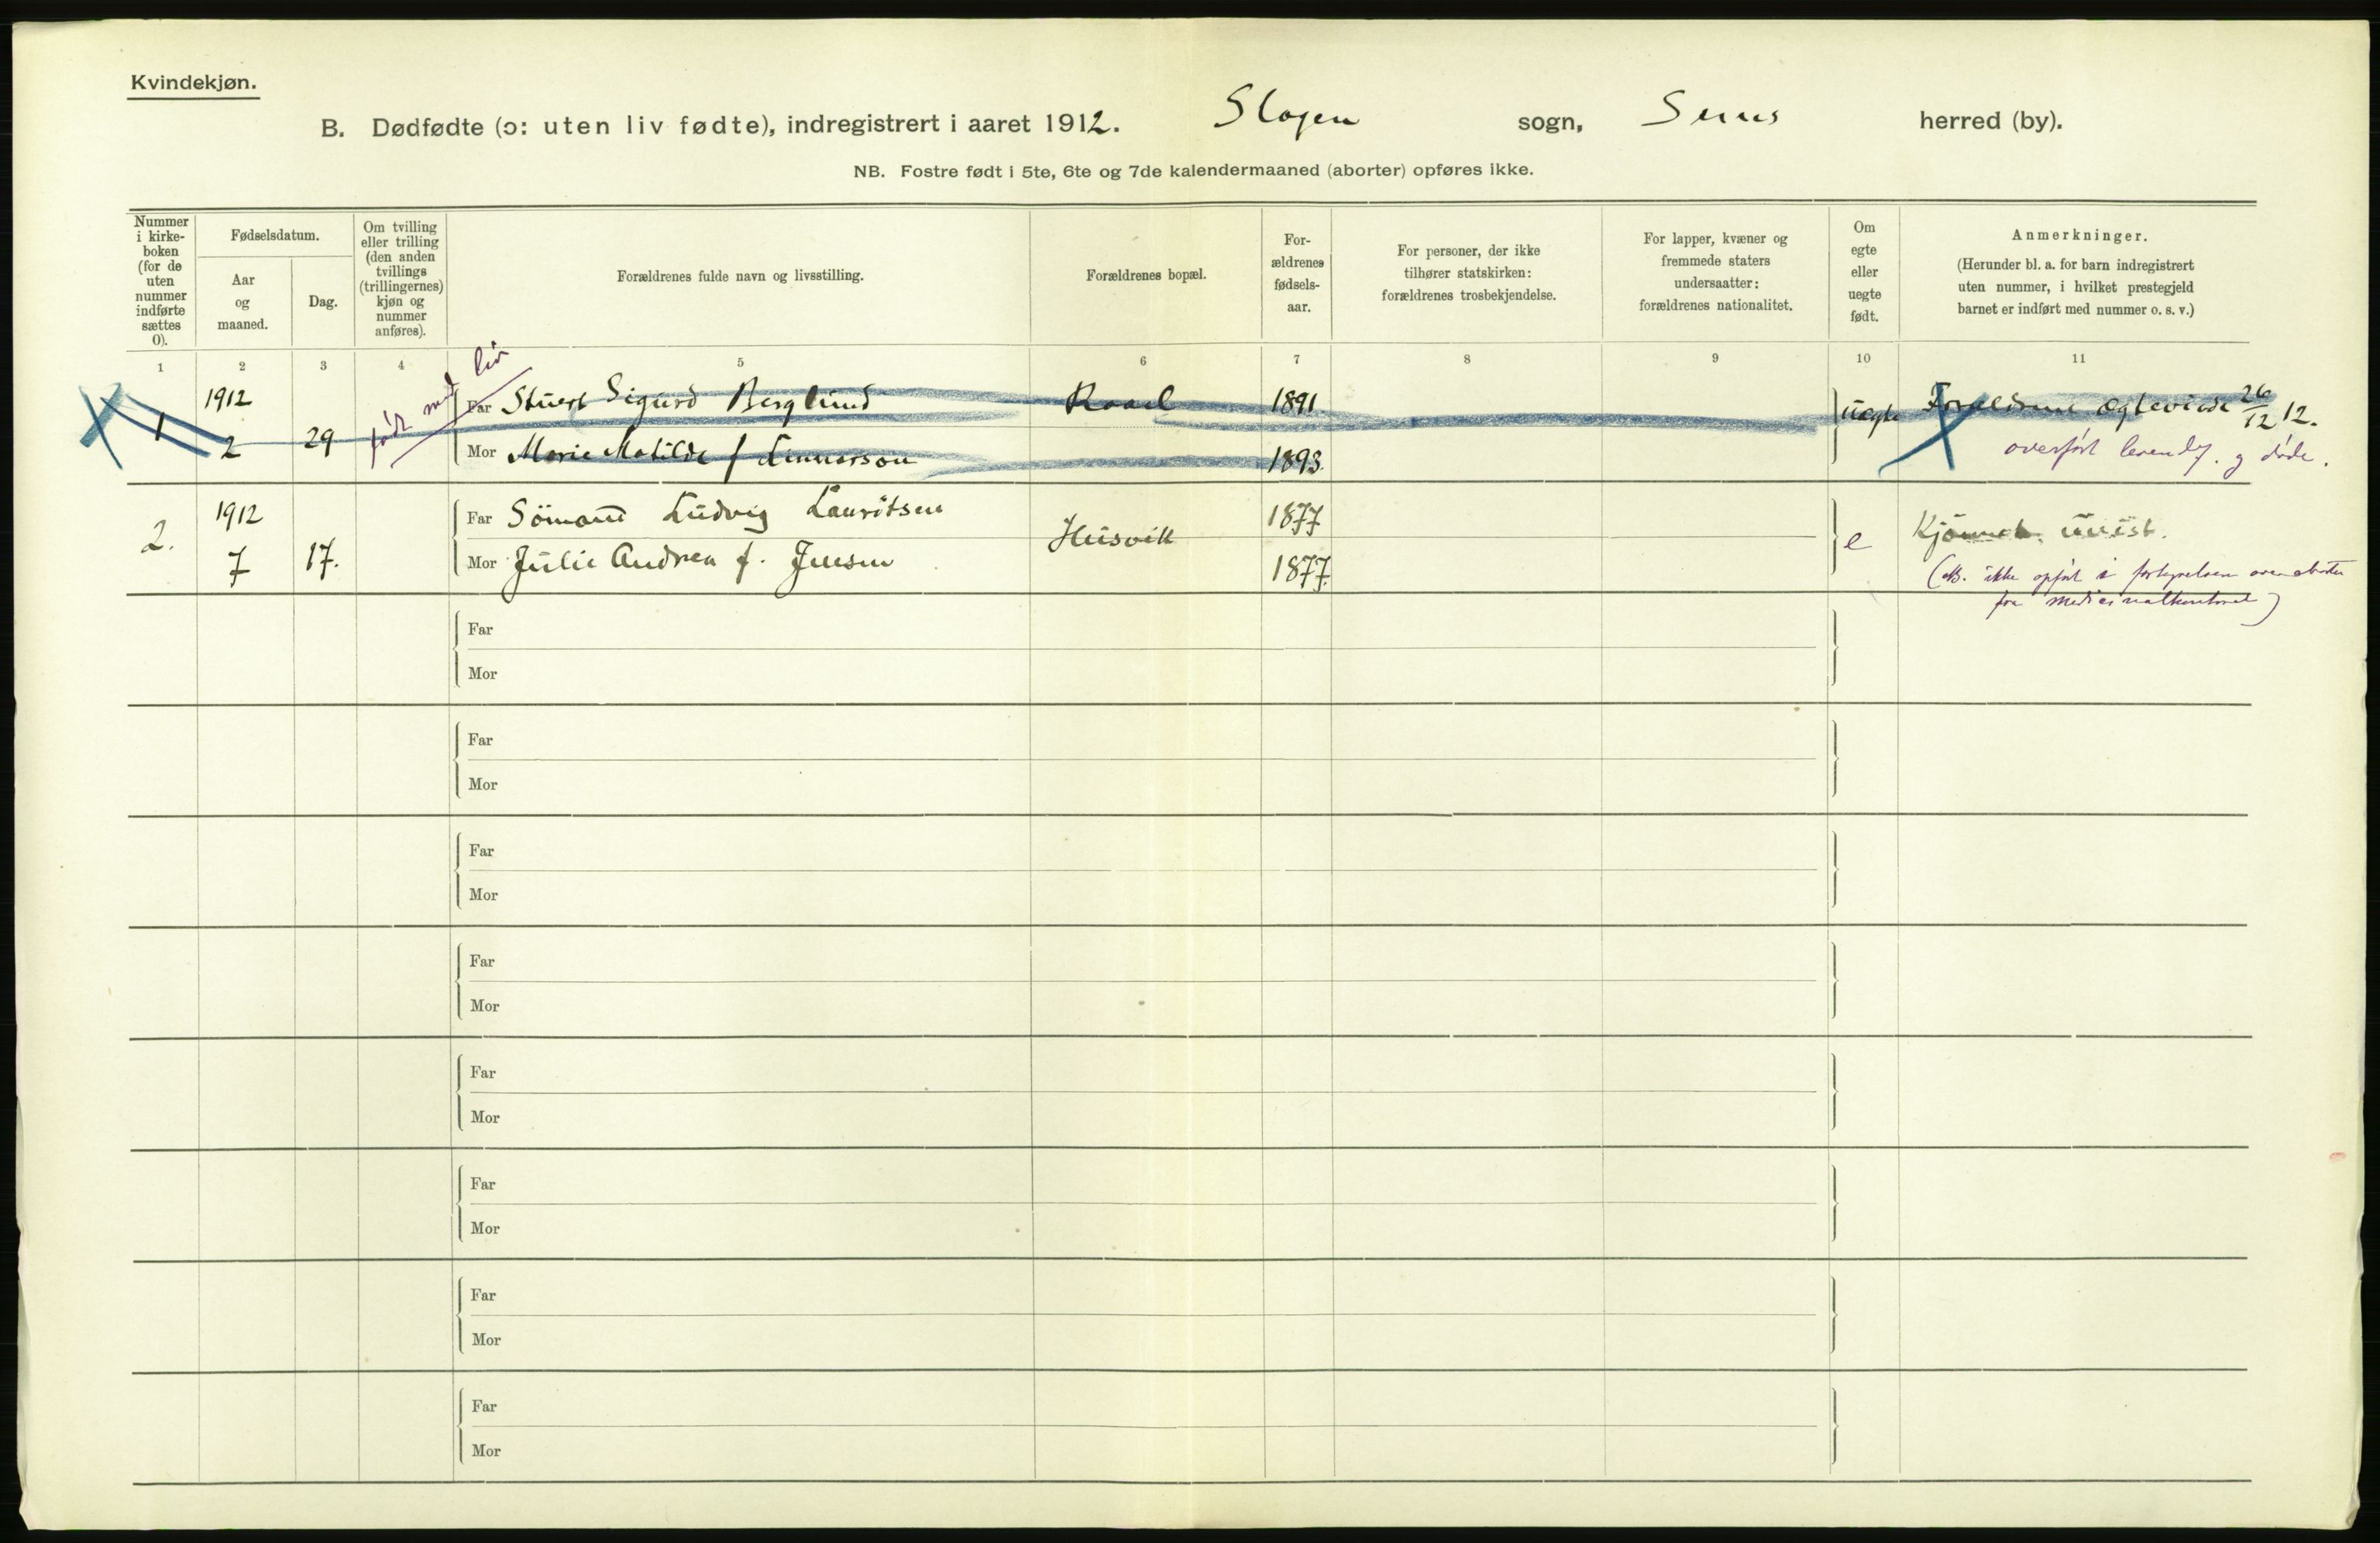 Kvindekjøn.
B. Dødfødte (ɔ: uten liv fødte), indregistrert i aaret 1912. Slagen sogn, Sems herred (by).
NB. Fostre født i 5te, 6te og 7de kalendermaaned (aborter) opføres ikke.
Nummer
i kirke-
boken
(for de
uten
nummer
indførte
sættes
0).
Fødselsdatum.
Aar
og
maaned.
Dag.
Om tvilling
eller trilling
(den anden
tvillings
(trillingernes)
kjøn og
nummer
anføres).
Forældrenes fulde navn og livsstilling.
Forældrenes bopæl.
For-
ældrenes
fødsels-
aar.
For personer, der ikke
tilhører statskirken:
forældrenes trosbekjendelse.
For lapper, kvæner og
fremmede staters
undersaatter:
forældrenes nationalitet.
Om
egte
eller
uegte
født.
Anmerkninger.
(Herunder bl. a. for barn indregistrert
uten nummer, i hvilket prestegjeld
barnet er indført med nummer o. s. v.)
1 2 3 4 5 6 7 8 9 10 11
født med liv
1 1912 2 29
Far Stuert Sigurd Berglund Raael 1891 uegte Forældrene ægteviede 26/12 12.
Mor Marie Matilde f Linnarson 1893 overført levendf. og døde.
2. 1912 7 17.
Far Sömand Ludvig Lauritsen Husvik 1877 e Kjønnet uvist.
Mor Julie Andrea f. Jensen 1877 (NB. ikke opført i fortegnelsen over aborter
fra medicinalkontoret)
Far
Mor
Far
Mor
Far
Mor
Far
Mor
Far
Mor
Far
Mor
Far
Mor
Far
Mor